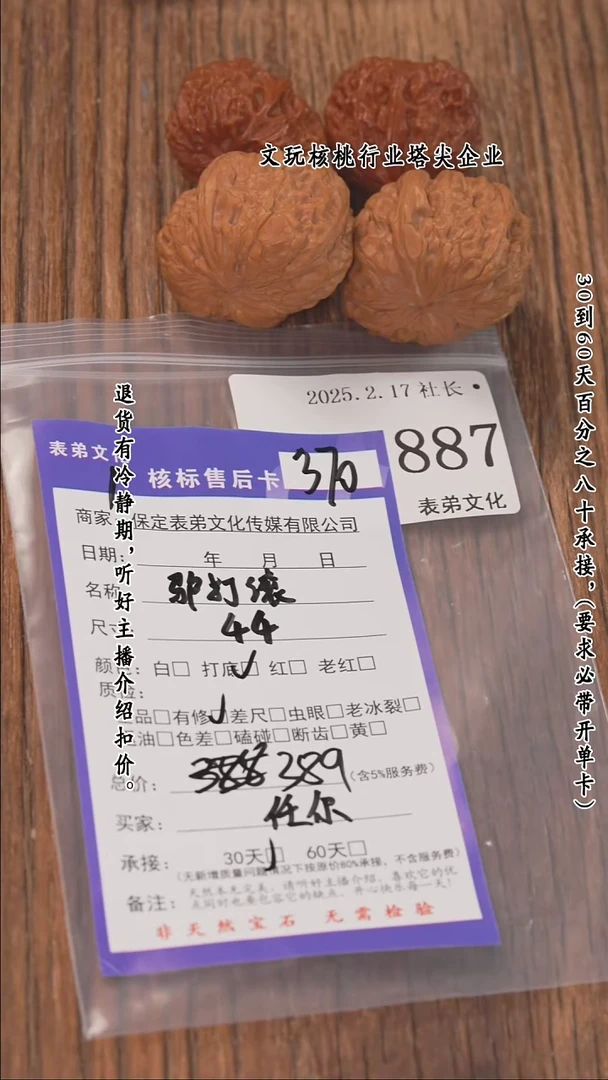 文玩核桃行业塔尖企业
30到60天百分之八十承接,(要求必带开单卡)
退货有冷静期,听好主播介绍扣价。
2025.2.17 社长
887
表弟文化
表弟文
核标售后卡 370
商家 保定表弟文化传媒有限公司
日期: 年 月 日
名称 驴打滚
尺寸 44
颜 : 白□ 打底☑ 红□ 老红□
质检:
品□有修☑差尺□虫眼□老冰裂□
油□色差□磕碰□断齿□黄□
总价: 388 389 (含5%服务费)
买家: 任尔
承接: 30天☑ 60天□
(无新增质量问题情况下按原价80%承接,不含服务费)
备注: 天然本无完美,请听好主播介绍,喜欢它的优
点同时也要包容它的缺点,开心快乐每一天!
非天然宝石 无需检验